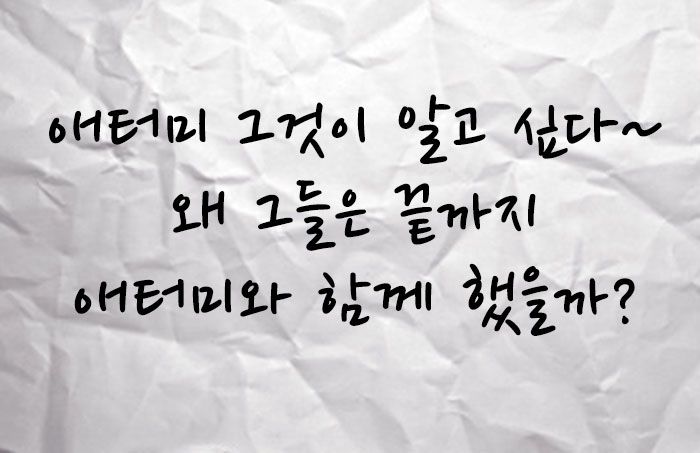 애터미 그것이 알고 싶다~
왜 그들은 끝까지
애터미와 함께 했을까?